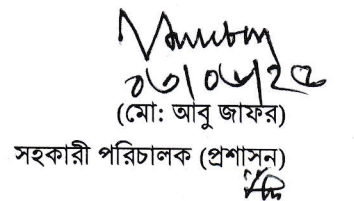 ০৩/০৮/২৫
(মো: আবু জাফর)
সহকারী পরিচালক (প্রশাসন)